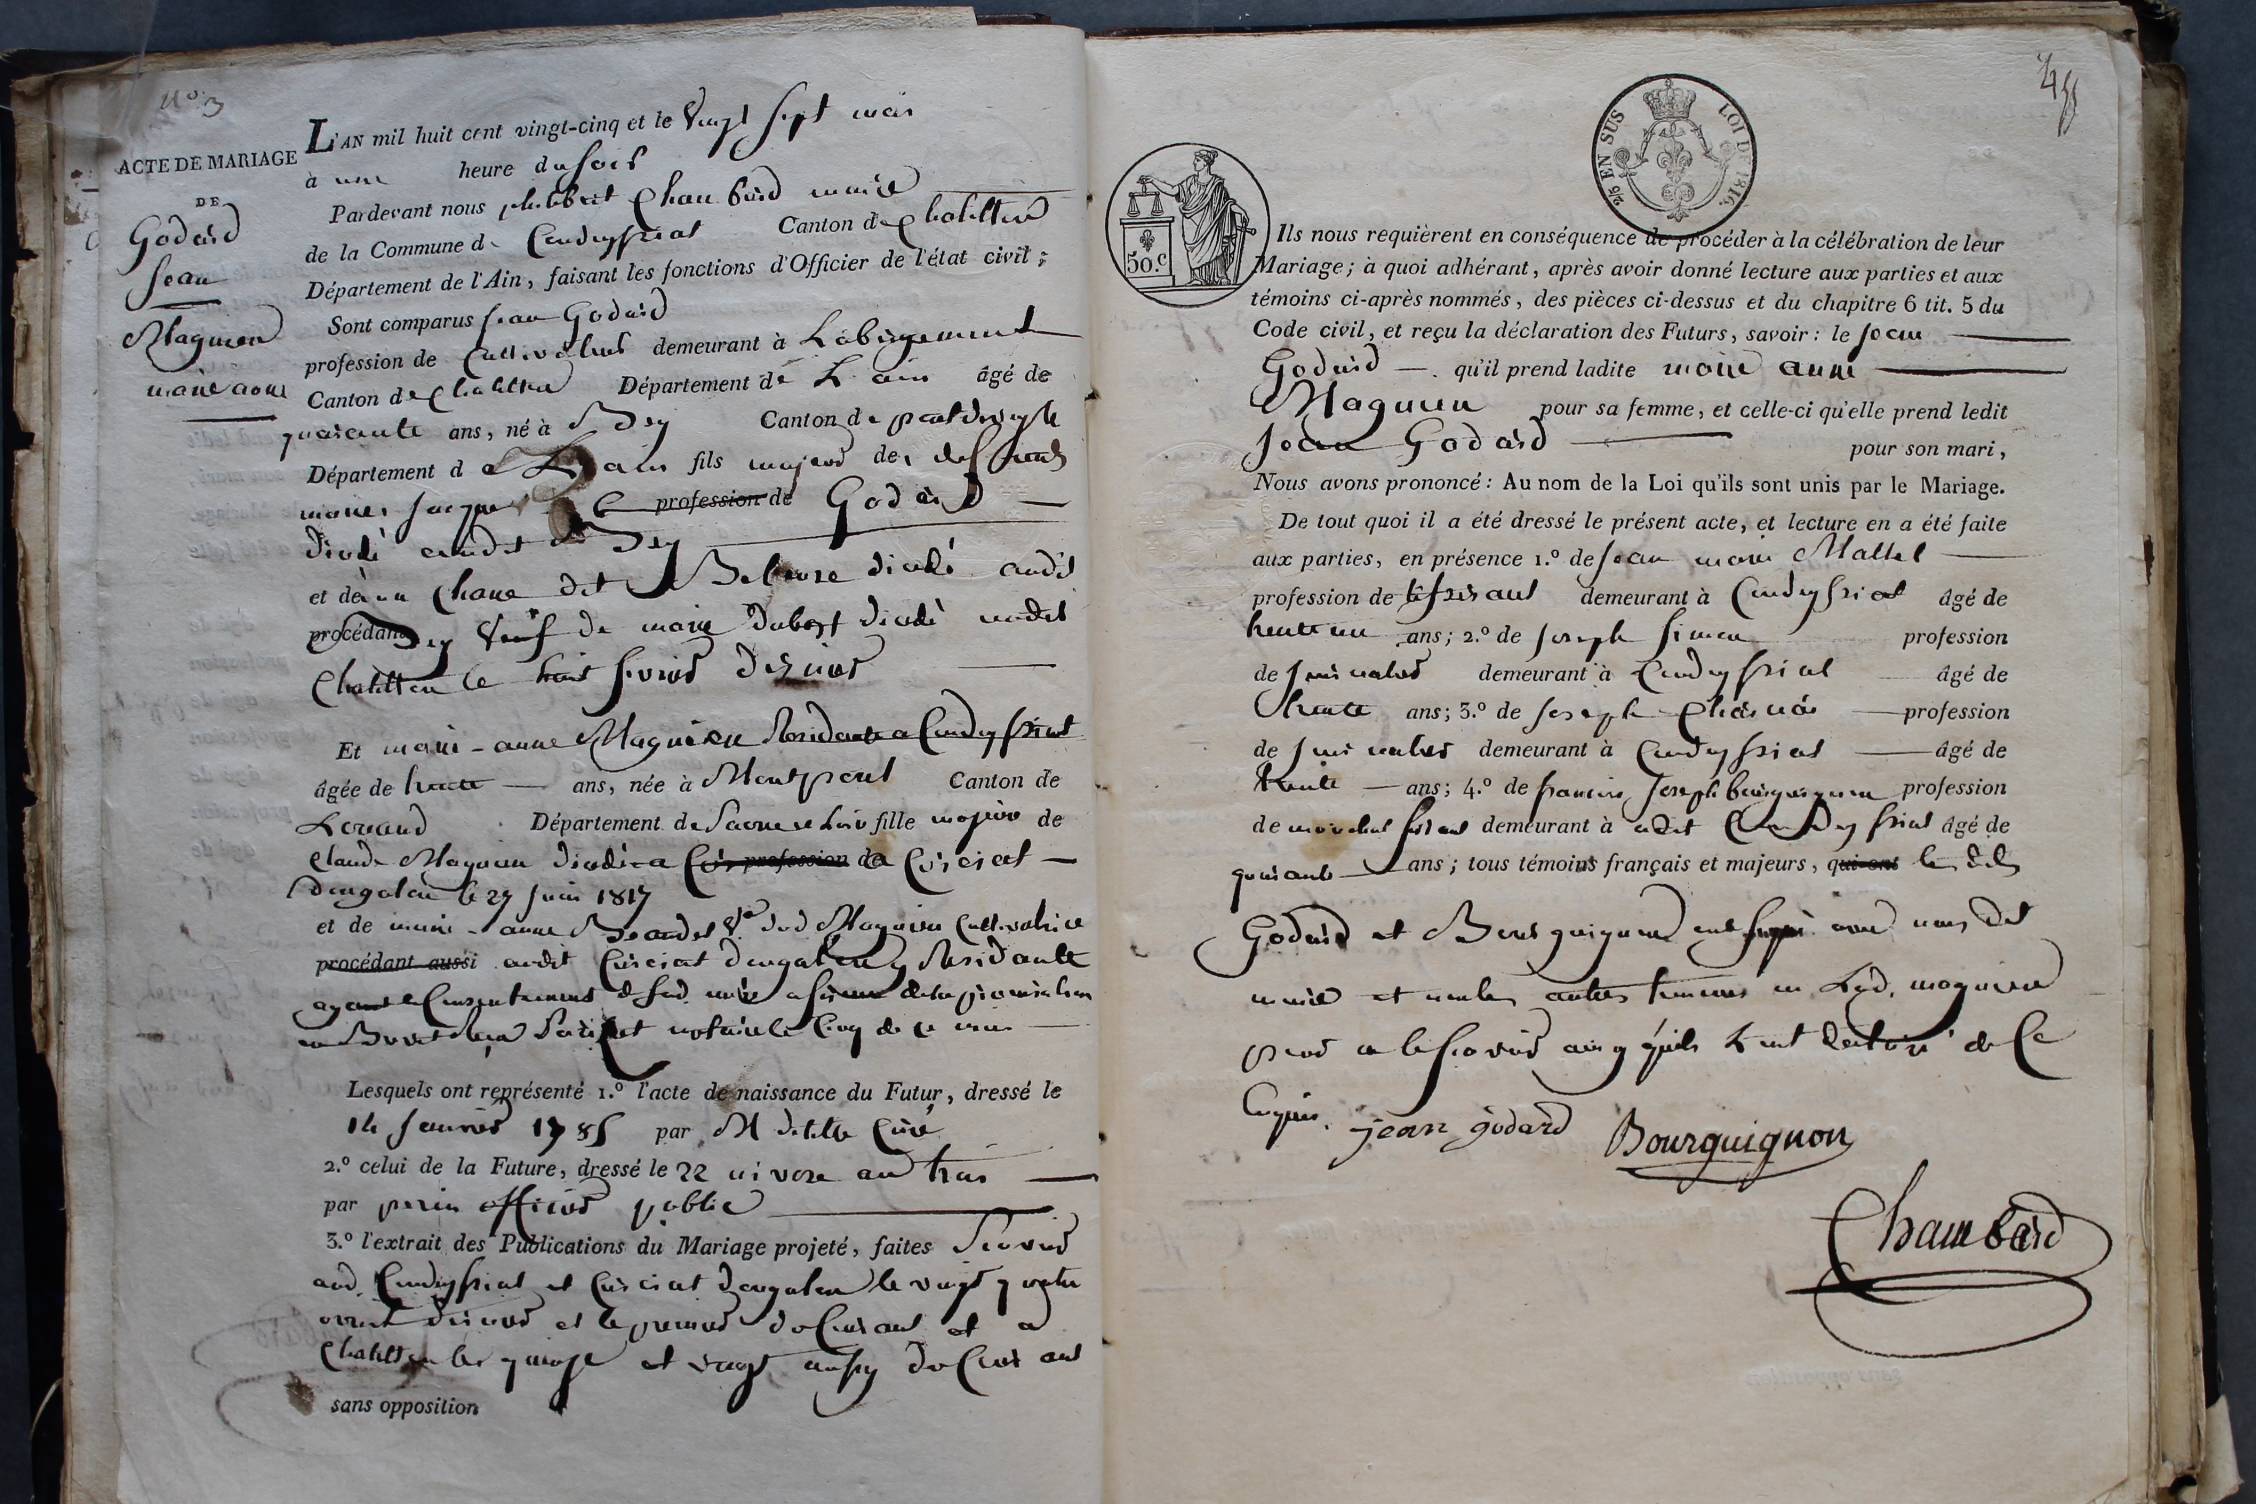 N.o 3
ACTE DE MARIAGE
DE
Godard
Jean
Magnien
marie anne
L'AN mil huit cent vingt-cinq et le vingt sept mai
à une heure du soir
Pardevant nous philibert Chambard maire
de la Commune de Condeyssiat Canton de chatillon
Département de l'Ain, faisant les fonctions d'Officier de l'état civil;
Sont comparus jean Godard
profession de Cultivateur demeurant à Labergement
Canton de Chatillon Département de L'ain âgé de
quarante ans, né à Bey Canton de pontdeveyle
Département de L'ain fils majeur de defunts
profession de Godard
décédé audit Bey
et de décédé audit
procédant Bey veuf de marie dubost décédé audit
Chatillon le huit fevrier dernier
Et marie-anne Magnien Residante a Condeyssiat
âgée de trente ans, née à Montpont Canton de
Louand Département de Saone et Loire fille majeure de
Claude Magnien décédé a profession de Curciat
dongalon le 27 juin 1817
et de marie-anne Ve dud Magnien Cultivatrice
procédant aussi audit Curciat dongalon y Residante
ayant le Consentement de sad. mere
notaire le Cinq de ce mois
Lesquels ont représenté 1.o l'acte de naissance du Futur, dressé le
14 janvier 1785 par M Curé
2.o celui de la Future, dressé le 22 nivose an trois
par perin officier public
3.o l'extrait des Publications du Mariage projeté, faites
aud. Condeyssiat et Curciat dongalon le vingt quatre
avril dernier et le premier du Courant et a
Chatillon les quinze et vingt du Courant
sans opposition
2/5 EN SUS LOI DE 1816.
50.c
Ils nous requièrent en conséquence de procéder à la célébration de leur
Mariage; à quoi adhérant, après avoir donné lecture aux parties et aux
témoins ci-après nommés, des pièces ci-dessus et du chapitre 6 tit. 5 du
Code civil, et reçu la déclaration des Futurs, savoir: le jean
Godard qu'il prend ladite marie anne
Magnien pour sa femme, et celle-ci qu'elle prend ledit
Jean Godard pour son mari,
Nous avons prononcé: Au nom de la Loi qu'ils sont unis par le Mariage.
De tout quoi il a été dressé le présent acte, et lecture en a été faite
aux parties, en présence 1.o de jean marie Mallet
profession de tisserant demeurant à Condeyssiat âgé de
trente un ans; 2.o de joseph simon profession
de journalier demeurant à Condeyssiat âgé de
trente ans; 3.o de joseph profession
de journalier demeurant à Condeyssiat âgé de
trente ans; 4.o de francois joseph bourguignon profession
de marechal ferrant demeurant à audit Condeyssiat âgé de
quarante ans; tous témoins français et majeurs, qui ont
Godard et Bourguignon ont signé avec nous dit
maire et non les autres temoins ni Lad. magnien
pour ne le scavoir ainsy qu'ils l'ont declaré de ce
Enquis. jean godard Bourguignon
Chambard